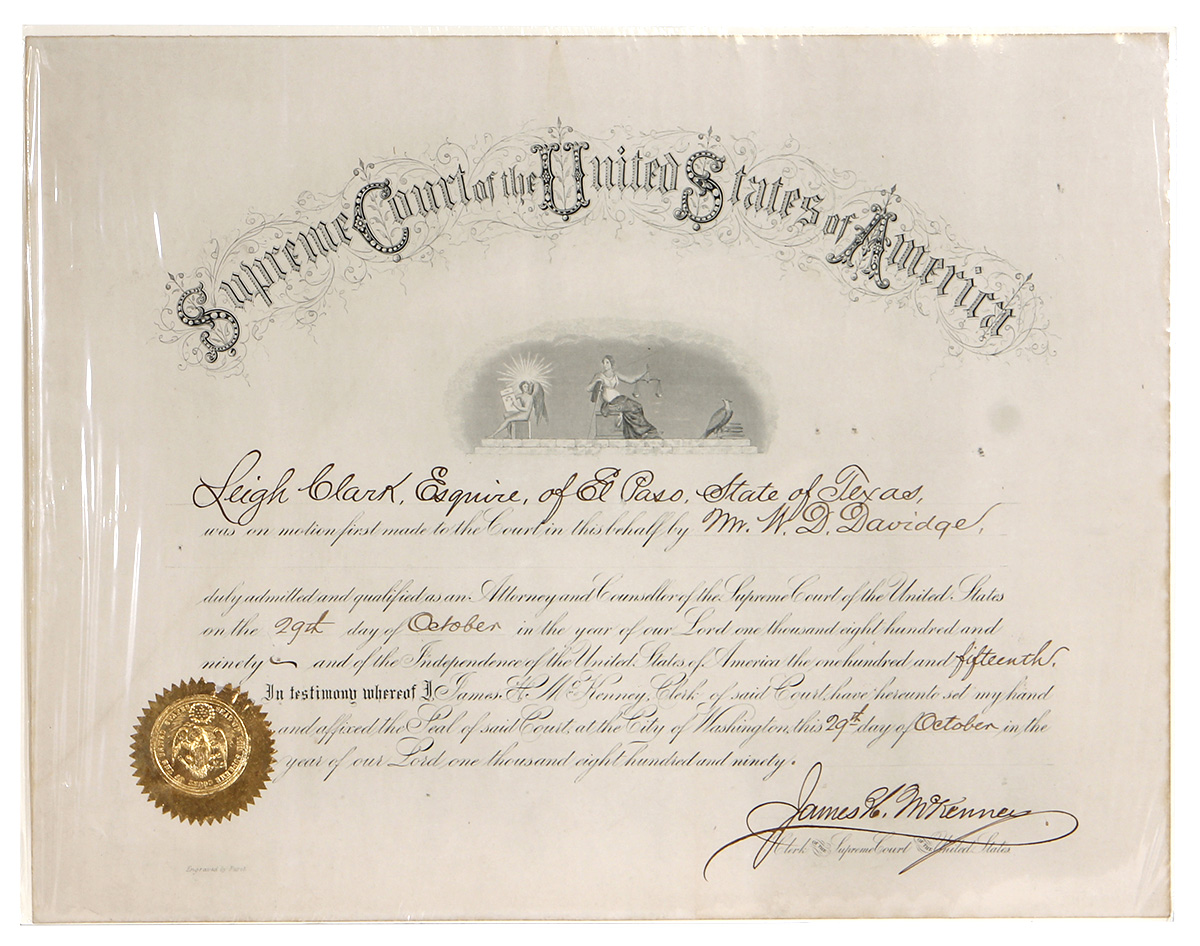 Supreme Court of the United States of America
Leigh Clark, Esquire, of El Paso, State of Texas,
was on motion first made to the Court in this behalf by Mr. W. D. Davidge,
duly admitted and qualified as an Attorney and Counsellor of the Supreme Court of the United States
on the 29th day of October in the year of our Lord one thousand eight hundred and
ninety and of the Independence of the United States of America the one hundred and fifteenth.
In testimony whereof I, James H. McKenney, Clerk of said Court, have hereunto set my hand
and affixed the Seal of said Court, at the City of Washington, this 29th day of October in the
year of our Lord one thousand eight hundred and ninety.
James H. McKenney
Clerk OF THE Supreme Court OF THE United States
Engraved by